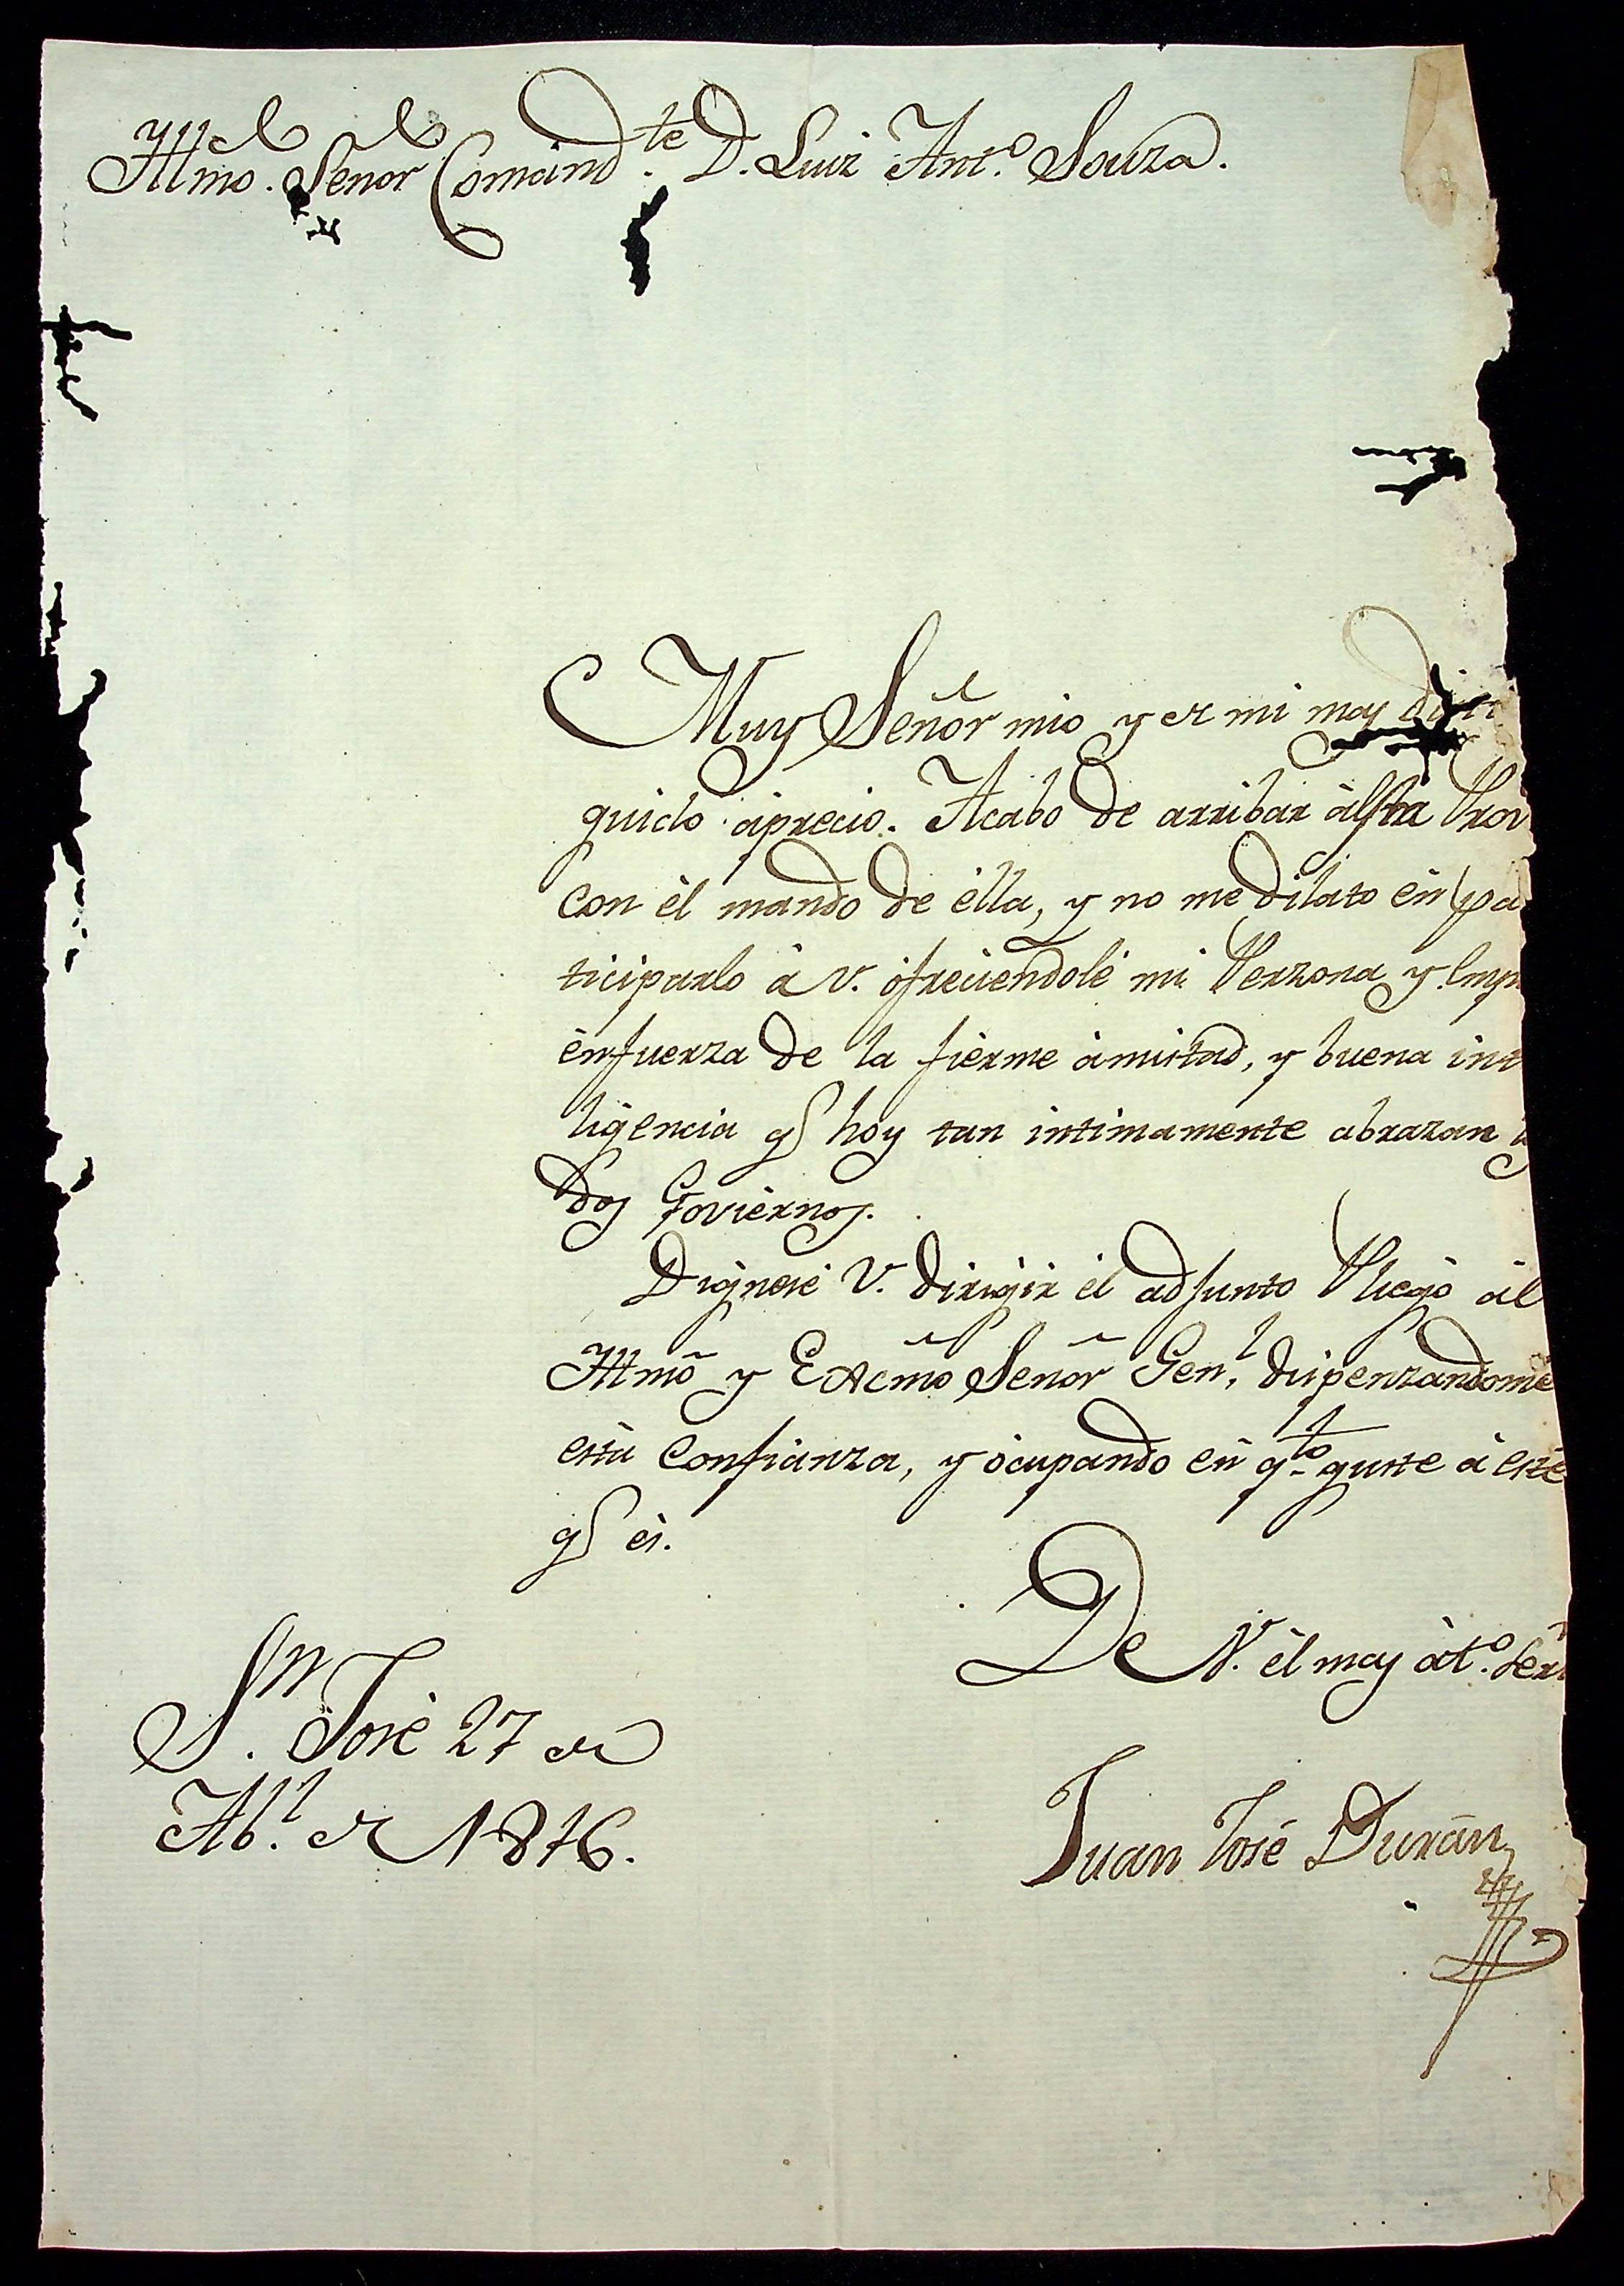 Illmo. Señor Comand.te D. Luiz Ant.o Souza.
Muy Señor mio y de mi mas disti
guido aprecio. Acabo de arribar à esta Prov
con èl mando de èlla, y no me dilato èn pa
ticiparlo à V. òfreciendolè mi Perzona y Emp
ènfuerza de la fièrme àmistad, y buena int
ligencia q.e hoy tan intimamente abrazan
dos Govièrnos.
Dignesè V. dirigir èl adjunto Pliegò àl
Illmõ y Excm̃o Señor Gen.l dispenzandomè
esta Confianza, y òcupando èn q.to guste à estè
q.e ès.
De V. èl mas àt.o Ser
S.n Josè 27 de
Ab.l de 1816.
Juan Josè Durán